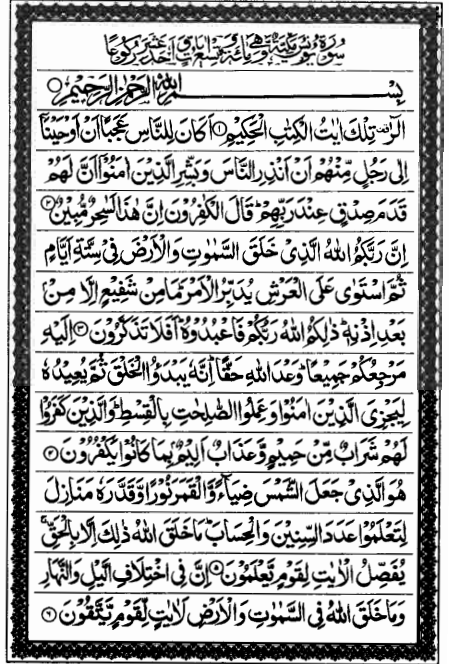 سُوْرَةُ يُوْنُسَ مَكِّيَّةٌ وَّهِيَ مِائَةٌ وَّتِسْعُ اٰيَاتٍ وَّاَحَدَ عَشَرَ رُكُوْعًا
بِسْمِ اللّٰهِ الرَّحْمٰنِ الرَّحِيْمِ
الٓرٰ ۟ تِلْكَ اٰيٰتُ الْكِتٰبِ الْحَكِيْمِ ۝۱ اَكَانَ لِلنَّاسِ عَجَبًا اَنْ اَوْحَيْنَاۤ
اِلٰى رَجُلٍ مِّنْهُمْ اَنْ اَنْذِرِ النَّاسَ وَبَشِّرِ الَّذِيْنَ اٰمَنُوْۤا اَنَّ لَهُمْ
قَدَمَ صِدْقٍ عِنْدَ رَبِّهِمْ ؔ قَالَ الْكٰفِرُوْنَ اِنَّ هٰذَا لَسٰحِرٌ مُّبِيْنٌ ۝۲
اِنَّ رَبَّكُمُ اللّٰهُ الَّذِيْ خَلَقَ السَّمٰوٰتِ وَالْاَرْضَ فِيْ سِتَّةِ اَيَّامٍ
ثُمَّ اسْتَوٰى عَلَى الْعَرْشِ يُدَبِّرُ الْاَمْرَ ؕ مَا مِنْ شَفِيْعٍ اِلَّا مِنْۢ
بَعْدِ اِذْنِهٖ ؕ ذٰلِكُمُ اللّٰهُ رَبُّكُمْ فَاعْبُدُوْهُ ؕ اَفَلَا تَذَكَّرُوْنَ ۝۳ اِلَيْهِ
مَرْجِعُكُمْ جَمِيْعًا ؕ وَعْدَ اللّٰهِ حَقًّا ؕ اِنَّهٗ يَبْدَؤُا الْخَلْقَ ثُمَّ يُعِيْدُهٗ
لِيَجْزِيَ الَّذِيْنَ اٰمَنُوْا وَعَمِلُوا الصّٰلِحٰتِ بِالْقِسْطِ ؕ وَالَّذِيْنَ كَفَرُوْا
لَهُمْ شَرَابٌ مِّنْ حَمِيْمٍ وَّعَذَابٌ اَلِيْمٌۢ بِمَا كَانُوْا يَكْفُرُوْنَ ۝۴
هُوَ الَّذِيْ جَعَلَ الشَّمْسَ ضِيَآءً وَّالْقَمَرَ نُوْرًا وَّقَدَّرَهٗ مَنَازِلَ
لِتَعْلَمُوْا عَدَدَ السِّنِيْنَ وَالْحِسَابَ ؕ مَا خَلَقَ اللّٰهُ ذٰلِكَ اِلَّا بِالْحَقِّ ۚ
يُفَصِّلُ الْاٰيٰتِ لِقَوْمٍ يَّعْلَمُوْنَ ۝۵ اِنَّ فِي اخْتِلَافِ الَّيْلِ وَالنَّهَارِ
وَمَا خَلَقَ اللّٰهُ فِي السَّمٰوٰتِ وَالْاَرْضِ لَاٰيٰتٍ لِّقَوْمٍ يَّتَّقُوْنَ ۝۶